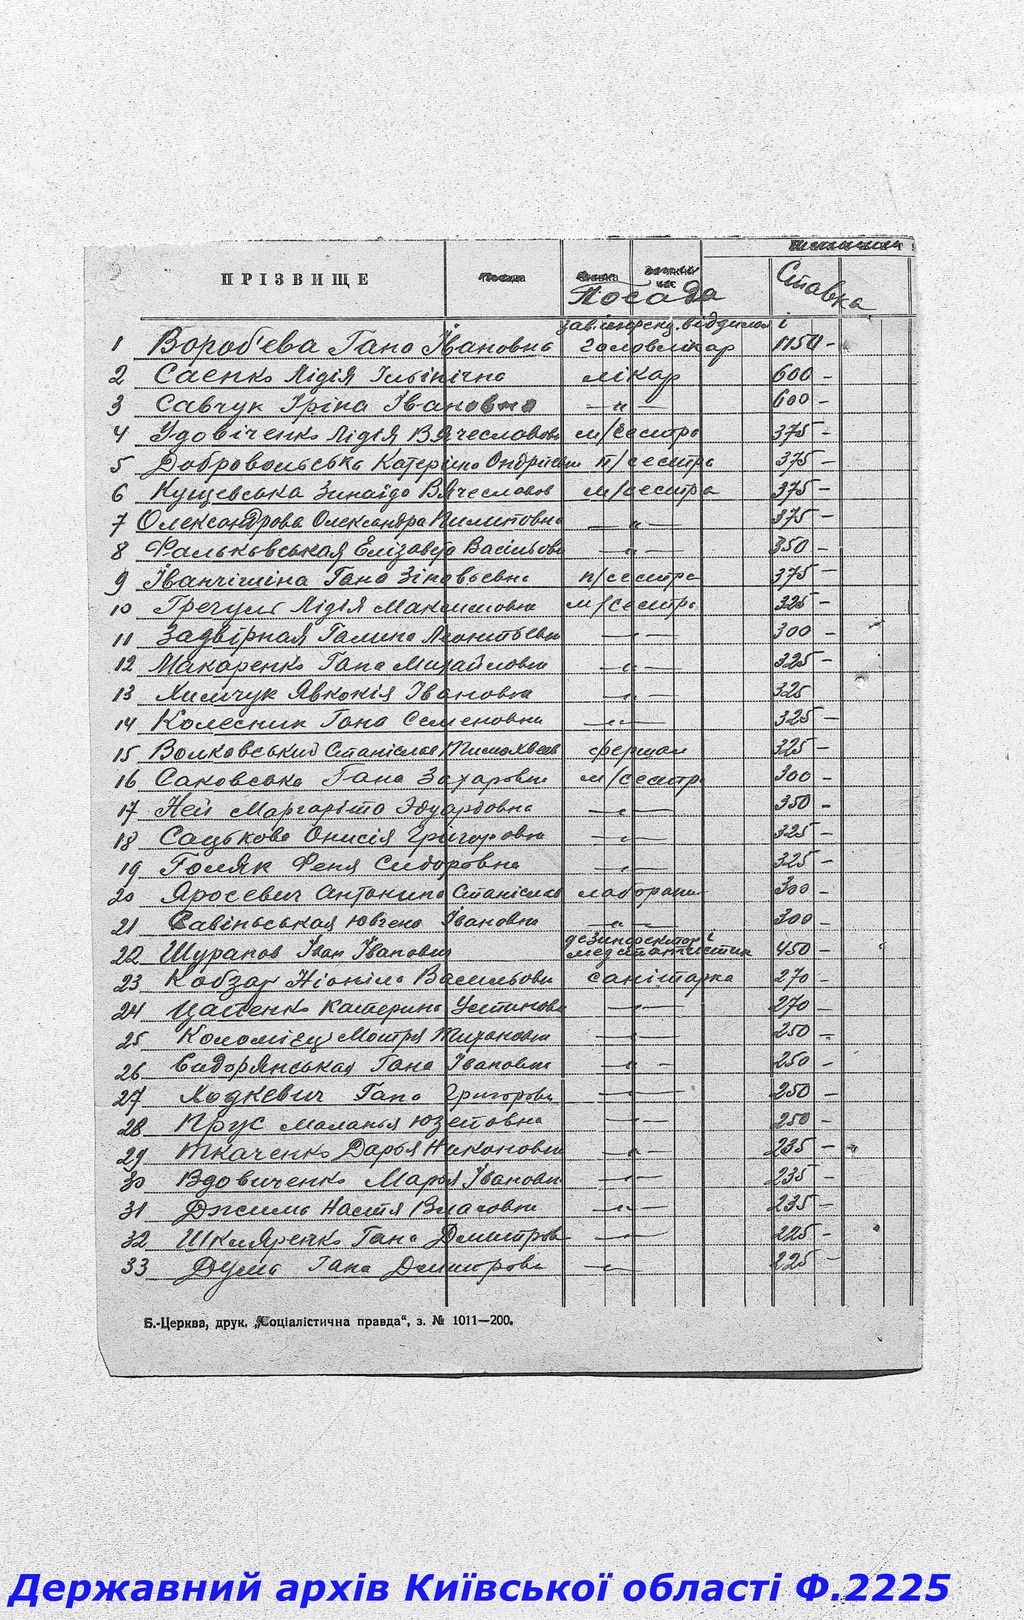 ПРІЗВИЩЕ Посада Ставка
зав. інфекц. відділом і
1 Вороб'єва Гана Івановна головлікар 1150 -
2 Саєнко Лідія Ільінічна лікар 600 -
3 Савчук Іріна Івановна —"— 600 -
4 Удовіченко Лідія Вячеславовн м/сестра 375 -
5 Добровольська Катеріна п/сестра 375 -
6 Кущевська Зинаїда Вячеславов м/сестра 375 -
7 Олександрова Олександра Пилиповна —"— 375 -
8 Фальковськая Елізавета Васільовн —"— 350 -
9 Іванчішіна Гана Зіновьевна п/сестра 375 -
10 Лідія Максимовна м/сестра 325 -
11 Задвірная Галина Леонтьевн —"— 300 -
12 Макаренко Гана Михайловна —"— 325 -
13 Химчук Явкокія Івановна —"— 325
14 Колесник Гана Семеновна —"— 325 -
15 Волковський Станіслав Тимохвеев фершал 325 -
16 Саковська Гана Захаровна м/сестр 300 -
17 Ней Маргаріта Эдуардовна —"— 350 -
18 Сацькова Онисія Грігоровна —"— 325 -
19 Голяк Феня Сидоровна —"— 325 -
20 Яросевич Антонина Станіслав лаборант 300 -
21 Савіньськая Ювгена Івановна —"— 300 -
дезинфектор і
22 Шурапов Іван Іванович медстатистик 450 -
23 Кобзар Ніоніла Васильовна санітарка 270 -
24 Цаленко Катерина Устинова —"— 270 -
25 Коломієц Мотря Тихановна —"— 250 -
26 Садорянськая Гана Івановна —"— 250 -
27 Ходкевич Гана Григоровн —"— 250 -
28 Прус Маланья Юзетовна —"— 250 -
29 Ткаченко Дарья Никоновна —"— 235 -
30 Вдовиченко Марья Івановн —"— 235 -
31 Джима Настя Власовна —"— 235 -
32 Шкляренко Гана Дмитров —"— 225 -
33 Дума Гана Дмитрова —"— 225 -
Б.-Церква, друк. „Соціалістична правда“, з. № 1011—200.
Державний архів Київської області Ф.2225